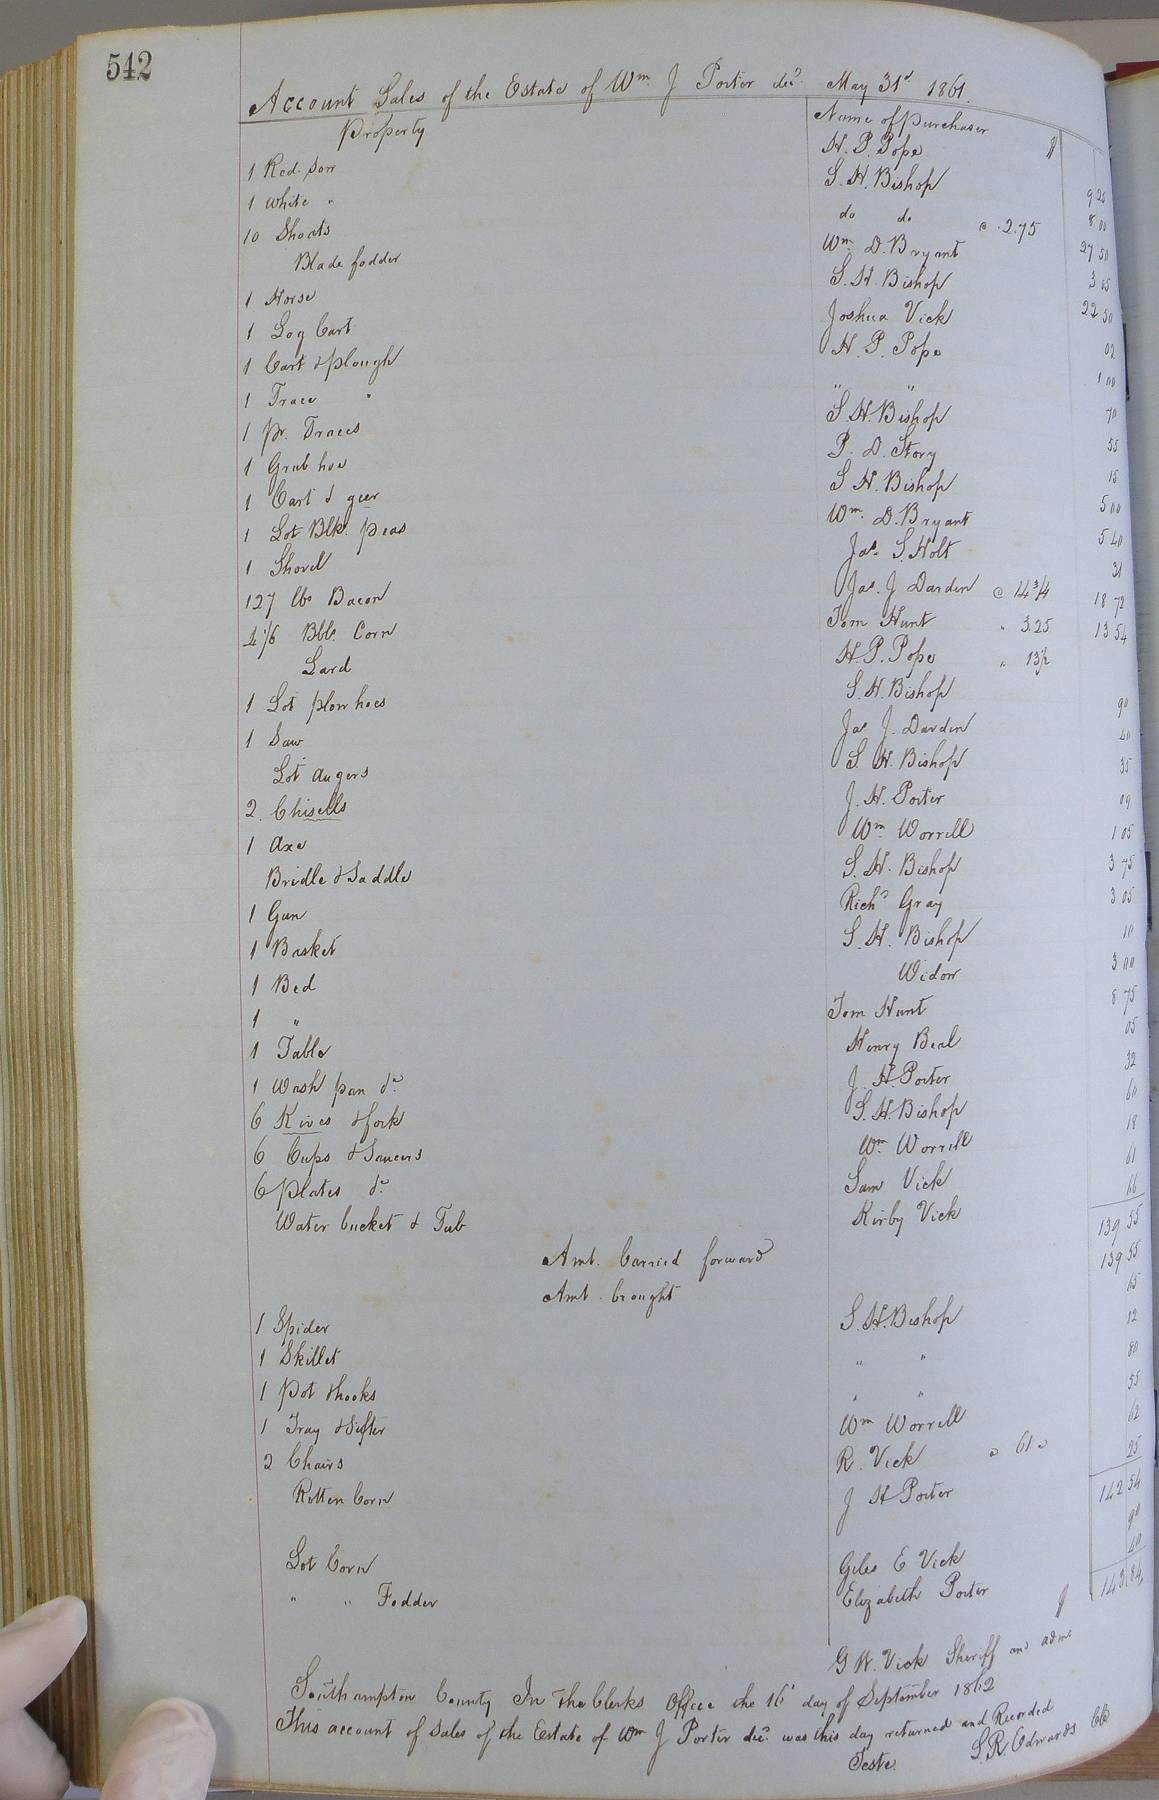 542
Account Sales of the Estate of Wm J Porter decd May 31st 1861.
Property Name of purchaser
1 Red Sow H. P. Pope $ 9 25
1 White " S. H. Bishop 8 00
10 Shoats do do @ 2.75 27 50
Blade fodder Wm D. Bryant 3 05
1 Horse S. H. Bishop 22 50
1 Log Cart Joshua Vick 02
1 Cart & plough H. P. Pope 1 00
1 Trace " " " 70
1 pr. Traces S. H. Bishop 55
1 Grub hoe P. D. Story 15
1 Cart & geer S. H. Bishop 5 00
1 Lot Blk. peas Wm. D. Bryant 5 40
1 Shovel Jas. S. Holt 31
127 lbs Bacon Jas. J Darden @ 14 3/4 18 72
4 1/6 Bbls Corn Tom Hunt " 3.25 13 54
Lard H. P. Pope " 13 1/2
1 Lot plow hoes S. H. Bishop 90
1 Saw Jas J. Darden 40
Lot augers S. H. Bishop 35
2 Chisells J. H. Porter 09
1 Axe Wm Worrell 1 05
Bridle & Saddle S. H. Bishop 3 75
1 Gun Richd Gray 3 05
1 Basket S. H. Bishop 10
1 Bed Widow 3 00
1 " Tom Hunt 8 75
1 Table Henry Beal 05
1 Wash pan &c J. H. Porter 32
6 Kives & fork S. H. Bishop 60
6 Cups & Saucers Wm Worrell 18
6 plates &c Sam Vick 61
Water bucket & Tub Kirby Vick 66
Amt. Carried forward 139 55
Amt. brought 139 55
1 Spider S. H. Bishop 15
1 Skillet " " 12
1 Pot & hooks " " 80
1 Tray & Sifter Wm Worrell 55
2 Chairs R. Vick @ 61c 62
Rotten Corn J H Porter 25
142 54
Lot Corn Giles E Vick 90
" " Fodder Elizabeth Porter 40
$ 143 84
G W. Vick Sheriff and admr
Southampton County In the Clerks Office the 16t day of September 1862
This account of Sales of the Estate of Wm J Porter decd was this day returned and Recorded
Teste. L. R. Edwards Clk